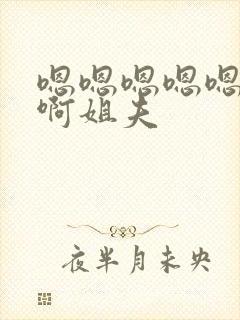 嗯嗯嗯嗯嗯
啊姐夫
夜半月未央